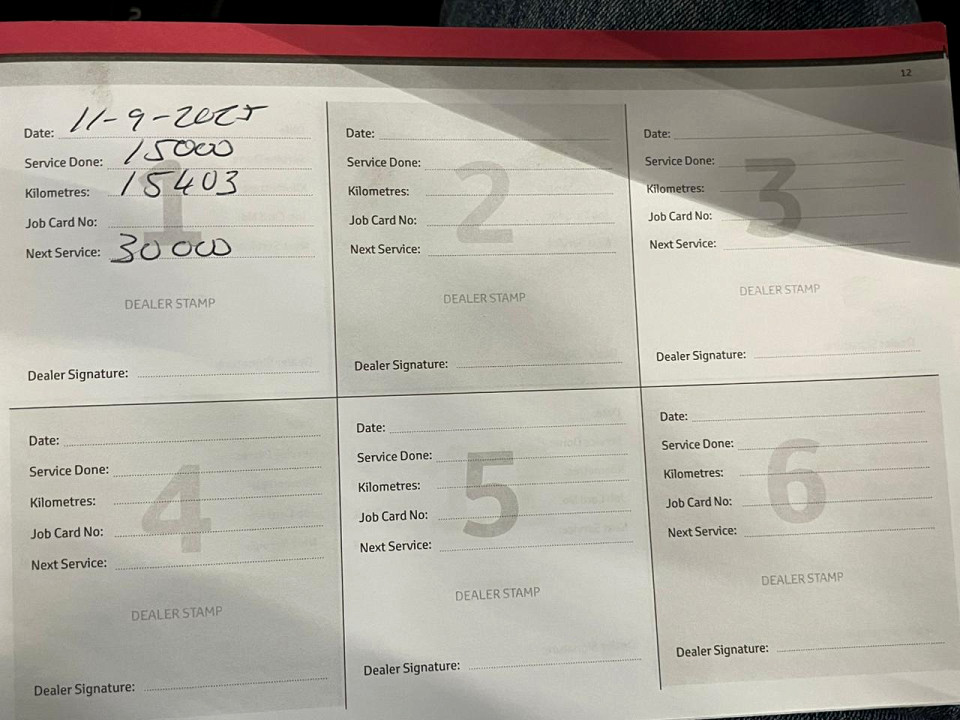 12
Date: 11-9-2025
Service Done: 15000
Kilometres: 15403
Job Card No:
Next Service: 30000
1
DEALER STAMP
Dealer Signature:
Date:
Service Done:
Kilometres:
Job Card No:
Next Service:
2
DEALER STAMP
Dealer Signature:
Date:
Service Done:
Kilometres:
Job Card No:
Next Service:
3
DEALER STAMP
Dealer Signature:
Date:
Service Done:
Kilometres:
Job Card No:
Next Service:
4
DEALER STAMP
Dealer Signature:
Date:
Service Done:
Kilometres:
Job Card No:
Next Service:
5
DEALER STAMP
Dealer Signature:
Date:
Service Done:
Kilometres:
Job Card No:
Next Service:
6
DEALER STAMP
Dealer Signature: